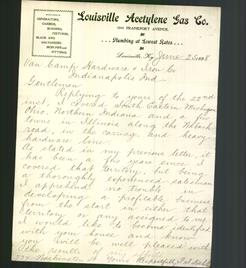 GENERATORS,
CARBIDE,
BURNERS,
FIXTURES,
BLACK AND
GALVANIZED
IRON PIPE AND
FITTINGS.
Louisville Acetylene Gas Co.
FRANKFORT AVENUE.
Plumbing at Lowest Rates
Louisville, Ky. June 25 1908
Van Camp Hardware & Iron Co
Indianapolis Ind.
Gentlemen
Replying to yours of the 22nd
inst, I covered South Eastern Michigan
Ohio, Northern Indiana and a few
towns in Illinois along the Wabash
road, in the carriage and heavy
hardware line
As stated in my previous letter, it
has been a few years since I
covered that territory, but being
a thoroughly experienced salesman
I apprehend no trouble in
developing a profitable business
from the start in either that
territory or any assigned to me
I would like to become identified
with your house and know
you will be well pleased with
the results of my work
Yours Respectfully